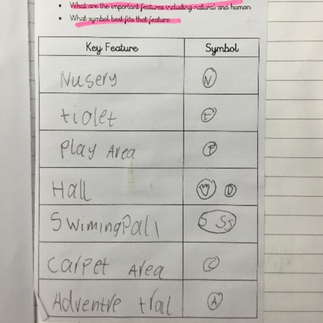 What are the important features including natural and human
What symbol best fits that feature
Key Feature Symbol
Nusery N
tiolet t
Play Area P
Hall D
Swimingpall S SS
Carpet Area C
Adventre tral A